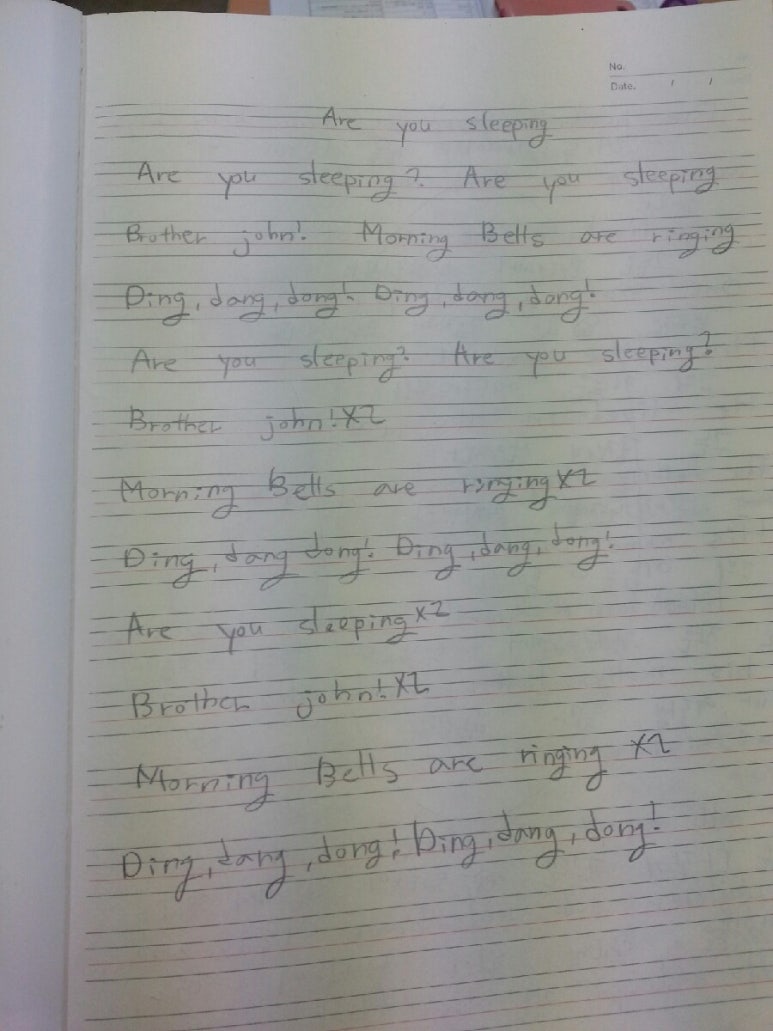 No.
Date. / /
Are you sleeping
Are you sleeping? Are you sleeping
Brother john! Morning Bells are ringing
Ding, dang, dong! Ding, dang, dong!
Are you sleeping? Are you sleeping?
Brother john! X2
Morning Bells are ringing X2
Ding, dang dong! Ding, dang, dong!
Are you sleeping X2
Brother john! X2
Morning Bells are ringing X2
Ding, dang, dong! Ding, dang, dong!